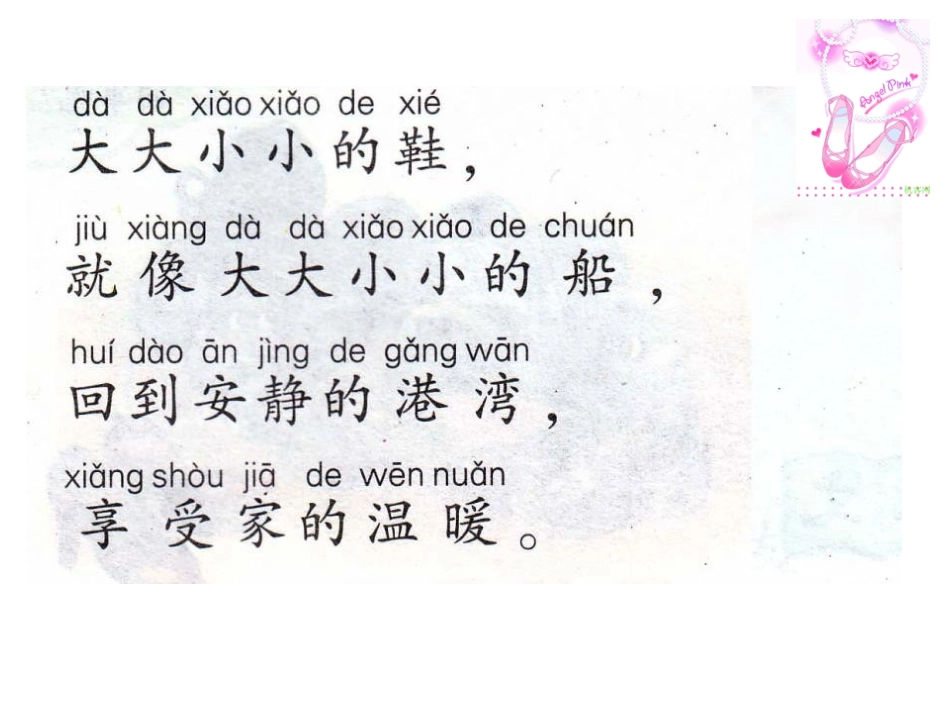 dà dà xiǎo xiǎo de xié
大大小小的鞋，
jiù xiàng dà dà xiǎo xiǎo de chuán
就像大大小小的船，
huí dào ān jìng de gǎng wān
回到安静的港湾，
xiǎng shòu jiā de wēn nuǎn
享受家的温暖。
Angel Pink